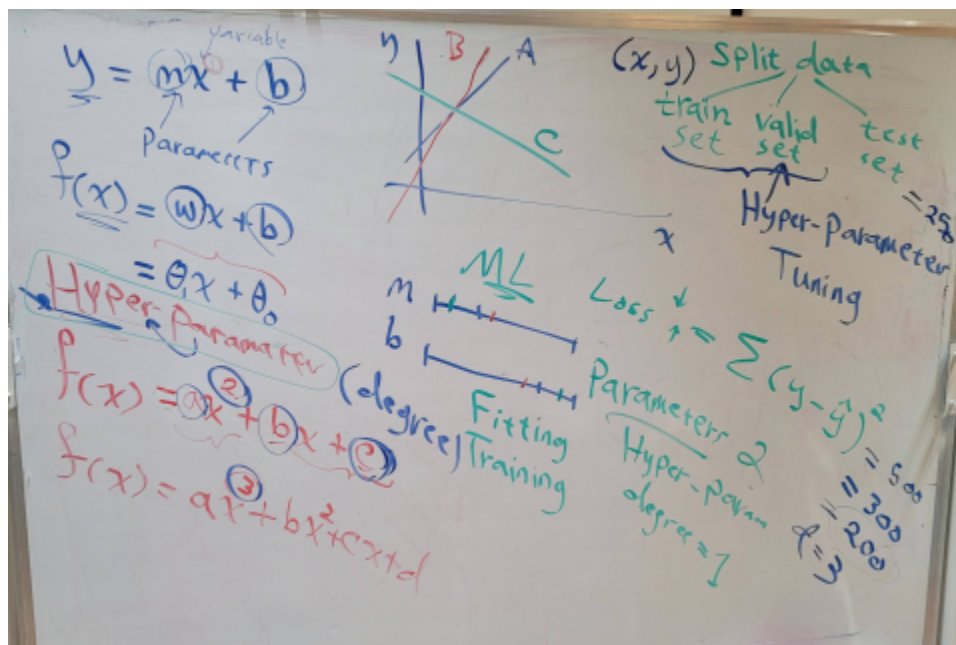 variable
y = mx + b
Parameters
f(x) = wx + b
= θ₁x + θ₀
Hyper-parameter
(degree)
f(x) = ax² + bx + c
f(x) = ax³ + bx² + cx + d
y
B
A
C
x
ML
m
b
Fitting
Training
(x, y) Split data
train set
valid set
test set
= 250
Hyper-Parameter
Tuning
Loss ↓ = Σ(y - ŷ)²
= 500
= 300
= 200
d = 3
Parameters 2
Hyper-param
degree = 1